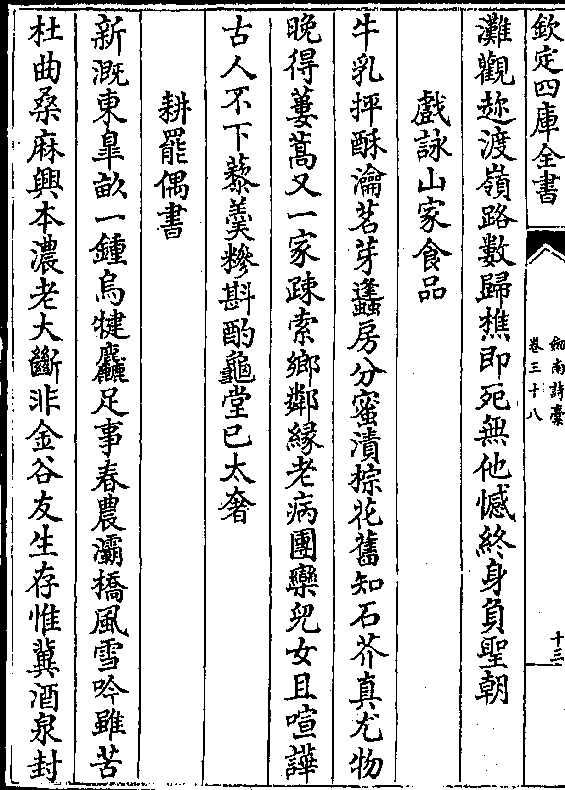 欽定四庫全書
劍南詩稾
卷三十八
十三
灘觀趂渡嶺路數歸樵即死無他憾終身負聖朝
戲詠山家食品
牛乳抨酥瀹茗芽蠭房分蜜漬椶花舊知石芥真尤物
晚得蔞蒿又一家疎索鄉鄰緣老病團欒兒女且喧譁
古人不下藜羹糝斟酌龜堂已太奢
耕罷偶書
新溉東臯畝一鍾烏犍麤足事春農灞橋風雪吟雖苦
杜曲桑麻興本濃老大斷非金谷友生存惟冀酒泉封